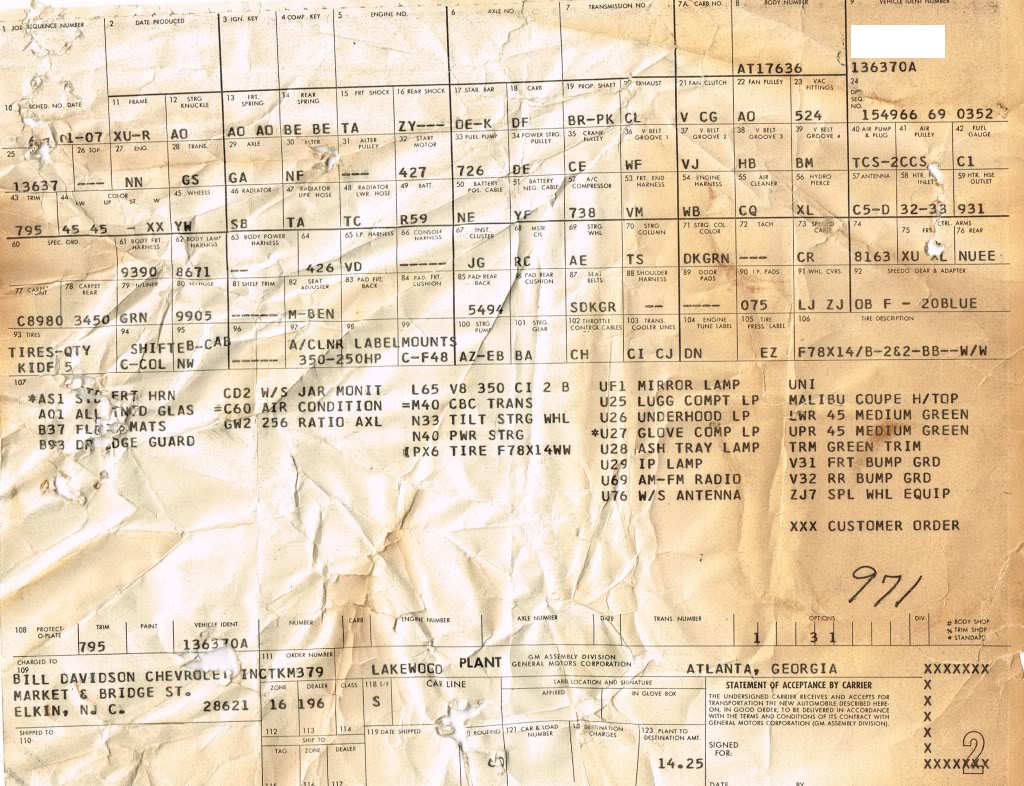 1 JOB SEQUENCE NUMBER 2 DATE PRODUCED 3 IGN. KEY 4 COMP. KEY 5 ENGINE NO. 6 AXLE NO. 7 TRANSMISSION NO. 7A. CARB NO. 8 BODY NUMBER 9 VEHICLE IDENT NUMBER
AT17636 136370A
10 SCHED. NO. DATE 11 FRAME 12 STRG KNUCKLE 13 FRT. SPRING 14 REAR SPRING 15 FRT SHOCK 16 REAR SHOCK 17 STAB. BAR 18 CARB 19 PROP. SHAFT 20 EXHAUST 21 FAN CLUTCH 22 FAN PULLEY 23 VAC FITTINGS 24 DF SEQ. NO.
01-07 XU-R AO AO AO BE BE TA ZY--- DE-K DF BR-PK CL V CG AO 524 154966 69 0352
25 26 TOP 27 ENG. 28 TRANS. 29 AXLE 30 FLTER 31 ALTER PULLEY 32 START MOTOR 33 FUEL PUMP 34 POWER STRG PULLEY 35 CRANK PULLEY 36 V BELT GROOVE 1 37 V BELT GROOVE 2 38 V BELT GROOVE 3 39 V BELT GROOVE 4 40 AIR PUMP & PLUG 41 AIR PULLEY 42 FUEL GAUGE
13637 ---- NN GS GA NF ---- 427 726 DE CE WF VJ HB BM TCS-2CCS C1
43 TRIM 44 COLOR LW UP ST W 45 WHEELS 46 RADIATOR 47 RADIATOR UPR. HOSE 48 RADIATOR LWR. HOSE 49 BATT. 50 BATTERY POS. CABLE 51 BATTERY NEG. CABLE 52 A/C COMPRESSOR 53 FRT. END HARNESS 54 ENGINE HARNESS 55 AIR CLEANER 56 HYDRO PIERCE 57 ANTENNA 58 HTR. INLET 59 HTR. HSE OUTLET
795 45 45 - XX YW SB TA TC R59 NE YF 738 VM WB CQ XL C5-D 32-33 931
60 SPEC. ORD. 61 BODY FRT HARNESS 62 BODY LAMP HARNESS 63 BODY POWER HARNESS 64 65 I.P. HARNESS 66 CONSOLE HARNESS 67 INST. CLUSTER 68 MSTR CYL 69 STRG WHL 70 STRG COLUMN 71 STRG COL COLOR 72 TACH 73 SPEED CABLE 74 75 FRT. CTRL ARMS 76 REAR
9390 8671 -- 426 VD ---- JG RC AE TS DKGRN -- CR 8163 XU NUEE
77 CARPET FRONT 78 CARPET REAR 79 80 SETNET 81 SHELF TRIM 82 SEAT ADJUSTER 83 PAD FRT. BACK 84 PAD. FRT CUSHION 85 PAD REAR BACK 86 PAD REAR CUSHION 87 SEAT BELTS 88 SHOULDER HARNESS 89 DOOR PADS 90 I.P. PADS 91 WHL CVRS. 92 SPEEDO GEAR & ADAPTER
C8980 3450 GRN 9905 ---- M-BEN 5494 SDKGR -- ---- 075 LJ ZJ OB F - 20BLUE
93 TIRES 94 95 96 97 98 99 100 STRG PUMP 101 STRG. GEAR 102 THROTTLE CONTROL CABLES 103 TRANS. COOLER LINES 104 ENGINE TUNE LABEL 105 TIRE PRESS LABEL 106 TIRE DESCRIPTION
TIRES-QTY SHIFTEB-CAB A/CLNR LABELMOUNTS
KIDF 5 C-COL NW ---- 350-250HP C-F48 AZ-EB BA CH CI CJ DN EZ F78X14/B-2&2-BB--W/W
107
*AS1 FRT HRN CD2 W/S JAR MONIT L65 V8 350 CI 2 B UF1 MIRROR LAMP UNI
A01 ALL GLAS =C60 AIR CONDITION =M40 CBC TRANS U25 LUGG COMPT LP MALIBU COUPE H/TOP
B37 MATS GW2 256 RATIO AXL N33 TILT STRG WHL U26 UNDERHOOD LP LWR 45 MEDIUM GREEN
B93 EDGE GUARD N40 PWR STRG *U27 GLOVE COMP LP UPR 45 MEDIUM GREEN
(PX6 TIRE F78X14WW U28 ASH TRAY LAMP TRM GREEN TRIM
U29 IP LAMP V31 FRT BUMP GRD
U69 AM-FM RADIO V32 RR BUMP GRD
U76 W/S ANTENNA ZJ7 SPL WHL EQUIP
XXX CUSTOMER ORDER
971
108 PROTECT-O-PLATE TRIM PAINT VEHICLE IDENT NUMBER CARB ENGINE NUMBER AXLE NUMBER DATE TRANS. NUMBER OPTIONS DIV # BODY SHOP % TRIM SHOP * STANDARD
795 136370A 1 3 1
CHARGED TO 109 111 ORDER NUMBER LAKEWOOD PLANT GM ASSEMBLY DIVISION GENERAL MOTORS CORPORATION ATLANTA, GEORGIA XXXXXXX
BILL DAVIDSON CHEVROLET INCTKM379
MARKET & BRIDGE ST. ZONE DEALER CLASS 118 S/F CAR LINE CARD LOCATION AND SIGNATURE AFFIXED IN GLOVE BOX
ELKIN, N C. 28621 16 196 S
STATEMENT OF ACCEPTANCE BY CARRIER X
THE UNDERSIGNED CARRIER RECEIVES AND ACCEPTS FOR X
TRANSPORTATION THE NEW AUTOMOBILE DESCRIBED HERE- X
ON, IN GOOD ORDER, TO BE DELIVERED IN ACCORDANCE X
WITH THE TERMS AND CONDITIONS OF ITS CONTRACT WITH
GENERAL MOTORS CORPORATION (GM ASSEMBLY DIVISION). X
SHIPPED TO 110 112 113 114 SHIP TO 119 DATE SHIPPED ROUTING 121 CAR & LOAD NUMBER DESTINATION CHARGES 123 PLANT TO DESTINATION AMT.
TAG ZONE DEALER 14.25
SIGNED FOR: X 2
XXXXXXX
DATE BY
115 116 117